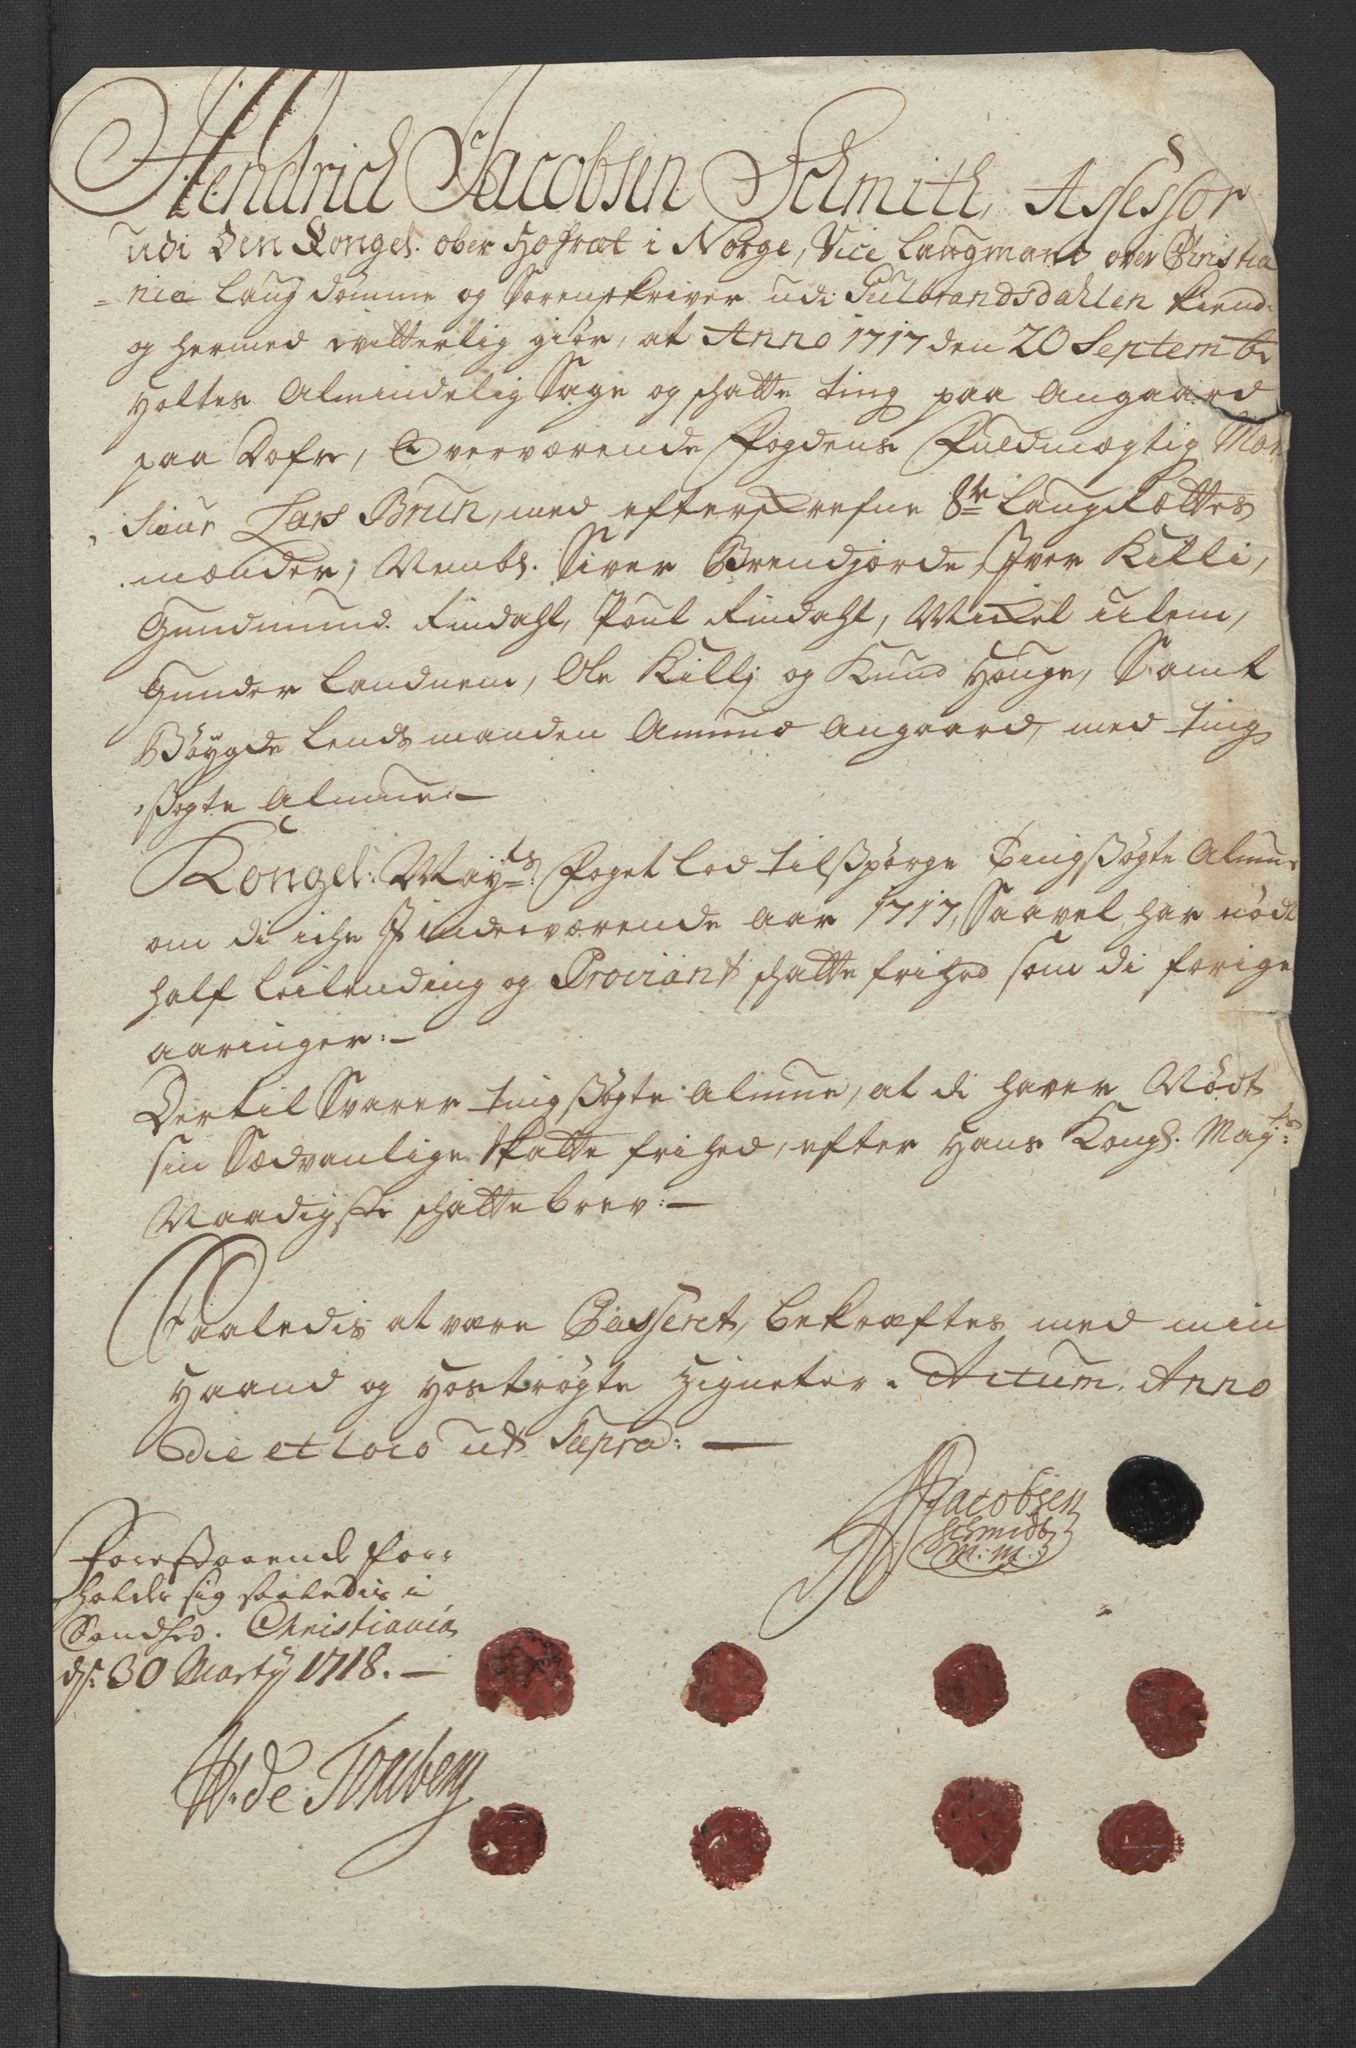 Hendrich Jacobsen Schmith, Assessor
udi Den Kongel. ober Hofræt i Norge, Vice Laugmand over Christia
=nia Laugdømme og Sorenskriver udi Gulbrandsdahlen kiend:
og hermed vitterlig giør, at Anno 1717 den 20 Septemb:
Holtes Almindelig Sage og schatte ting paa Angaard
paa Dofre, Overværende Fogdens Fuldmægtig Mon
sieur Lars Brun, med efterskrefne 8te Laugrættes
mænder, Nembl. Siver Brendjorde, Iver Killi,
Gundmund Findahl, Poul Findahl, Michel Ulem,
Gunder Landnem, Ole Killj og Knud Houge, Samt
Bøygde Lendsmanden Amund Angaard, med ting
søgte Almue:
Kongel: May:ts Foget lod tilspørge Tingsøgte Almue
om di iche Indeværende aar 1717, Saavel har nødt
half Leilending og Proviant schatte frihed som di forige
aaringer:
Dertil Svarer tingsøgte Almue, at di haver Nødt
sin Sædvanlige Skatte frihed, efter Hans Kongl. May:ts
Naadigste schattebrev:
Saaledis at være Passeret, bekræftes med min
Haand og Hostrøgte Zigneter. Actum. Anno
die et loco ut Supra:
HJacobsen
Schmidt
M: M:
Forestaaende for-
holder sig saaledis i
Sandhed. Christiania
ds: 30 Marty 1718.
W. de Tonsberg